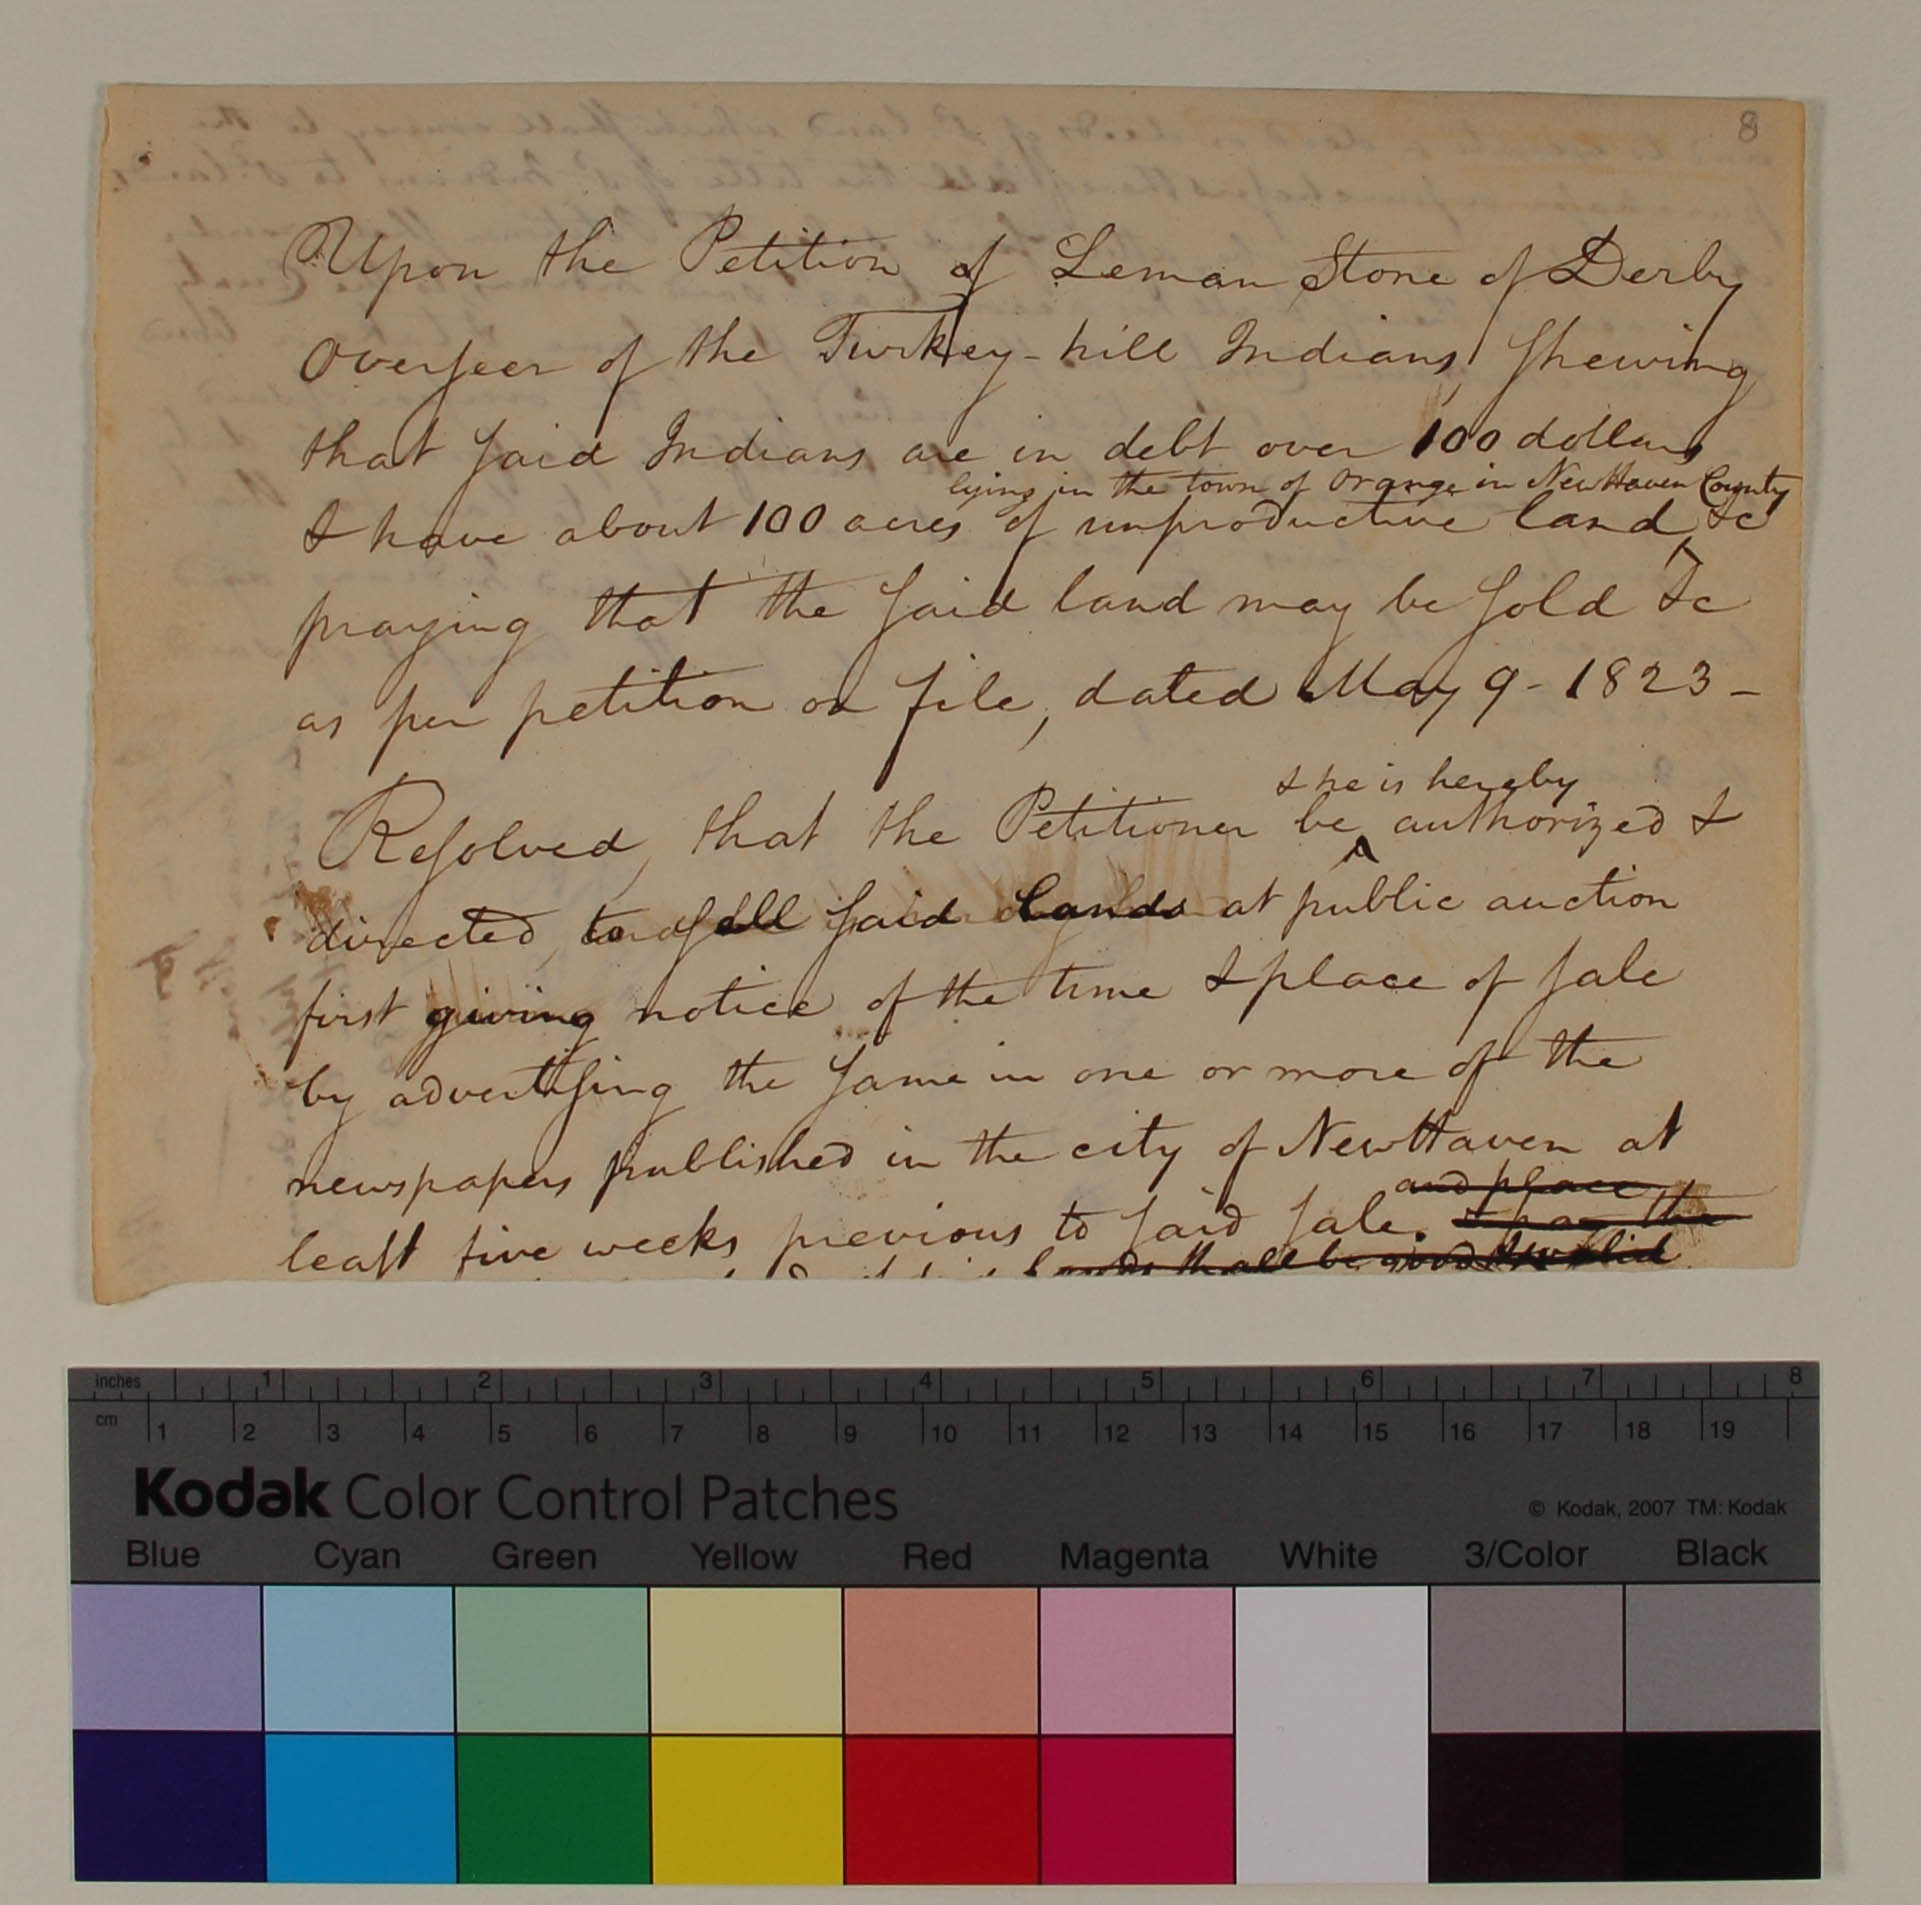 8
Upon the Petition of Leman Stone of Derby
Overseer of the Turkey-hill Indians, shewing
that said Indians are in debt over 100 dollars
lying in the town of Orange in New Haven County
& have about 100 acres of unproductive land, &c
praying that the said land may be sold &c
as per petition on file, dated May 9 - 1823 -
& he is hereby
Resolved, that the Petitioner be authorized &
directed, to sell said lands at public auction
first giving notice of the time & place of sale
by advertising the same in one or more of the
newspapers published in the city of New Haven at
and place
least five weeks previous to said sale. & pay the
lands shall be good & valid
inches 1 2 3 4 5 6 7 8
cm 1 2 3 4 5 6 7 8 9 10 11 12 13 14 15 16 17 18 19
Kodak Color Control Patches
© Kodak, 2007 TM: Kodak
Blue Cyan Green Yellow Red Magenta White 3/Color Black